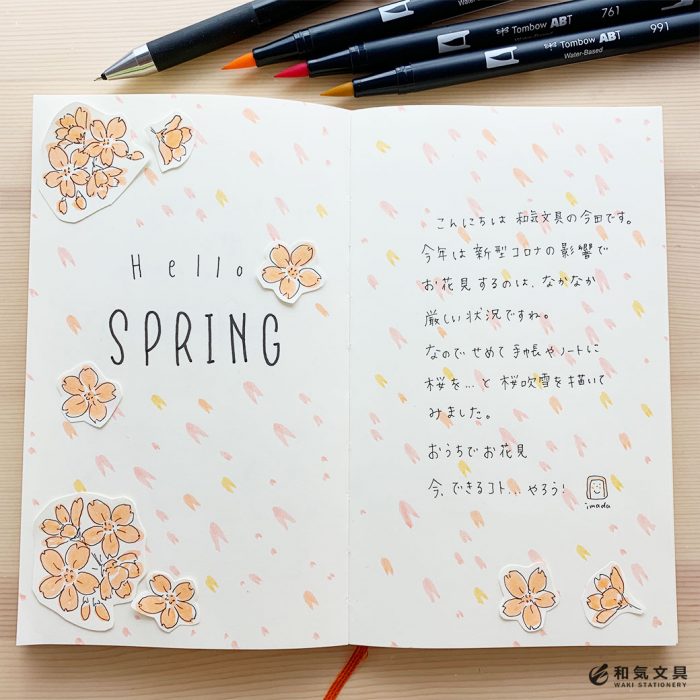 Tombow ABT
Water-Based
761
Tombow ABT
Water-Based
991
Hello
SPRING
こんにちは 和気文具の今田です。
今年は新型コロナの影響で
お花見するのは、なかなか
厳しい状況ですね。
なので せめて 手帳やノートに
桜を…と 桜吹雪を描いて
みました。
おうちでお花見
今、できるコト…やろう!
imada
和気文具
WAKI STATIONERY